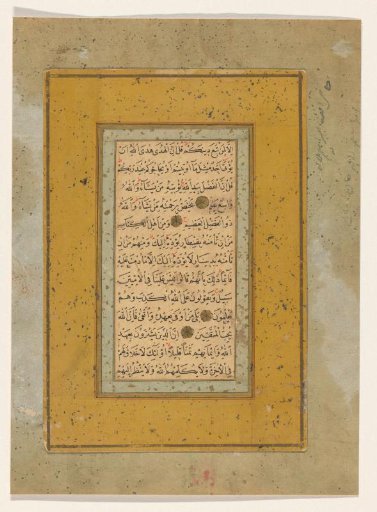 إلا لمن تبع دينكم قل إن الهدى هدى الله أن
يؤتى أحد مثل ما أوتيتم أو يحاجوكم عند ربكم
قل إن الفضل بيد الله يؤتيه من يشاء والله
واسع عليم يختص برحمته من يشاء والله
ذو الفضل العظيم ومن أهل الكتاب
من إن تأمنه بقنطار يؤده إليك ومنهم من إن
تأمنه بدينار لا يؤده إليك إلا ما دمت عليه
قائما ذلك بأنهم قالوا ليس علينا في الأميين
سبيل ويقولون على الله الكذب وهم
يعلمون بلى من أوفى بعهده واتقى فإن الله
يحب المتقين إن الذين يشترون بعهد
الله وأيمانهم ثمنا قليلا أولئك لا خلاق لهم
في الآخرة ولا يكلمهم الله ولا ينظر إليهم